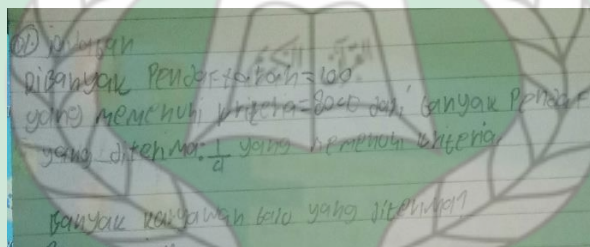 Jawaban
Dibanyak Pendaftaran = 100
yang memenuhi kriteria = 80% dari banyak Pendaf
yang diterima: 1/4 yang memenuhi kriteria
Banyak karyawan baru yang diterima?